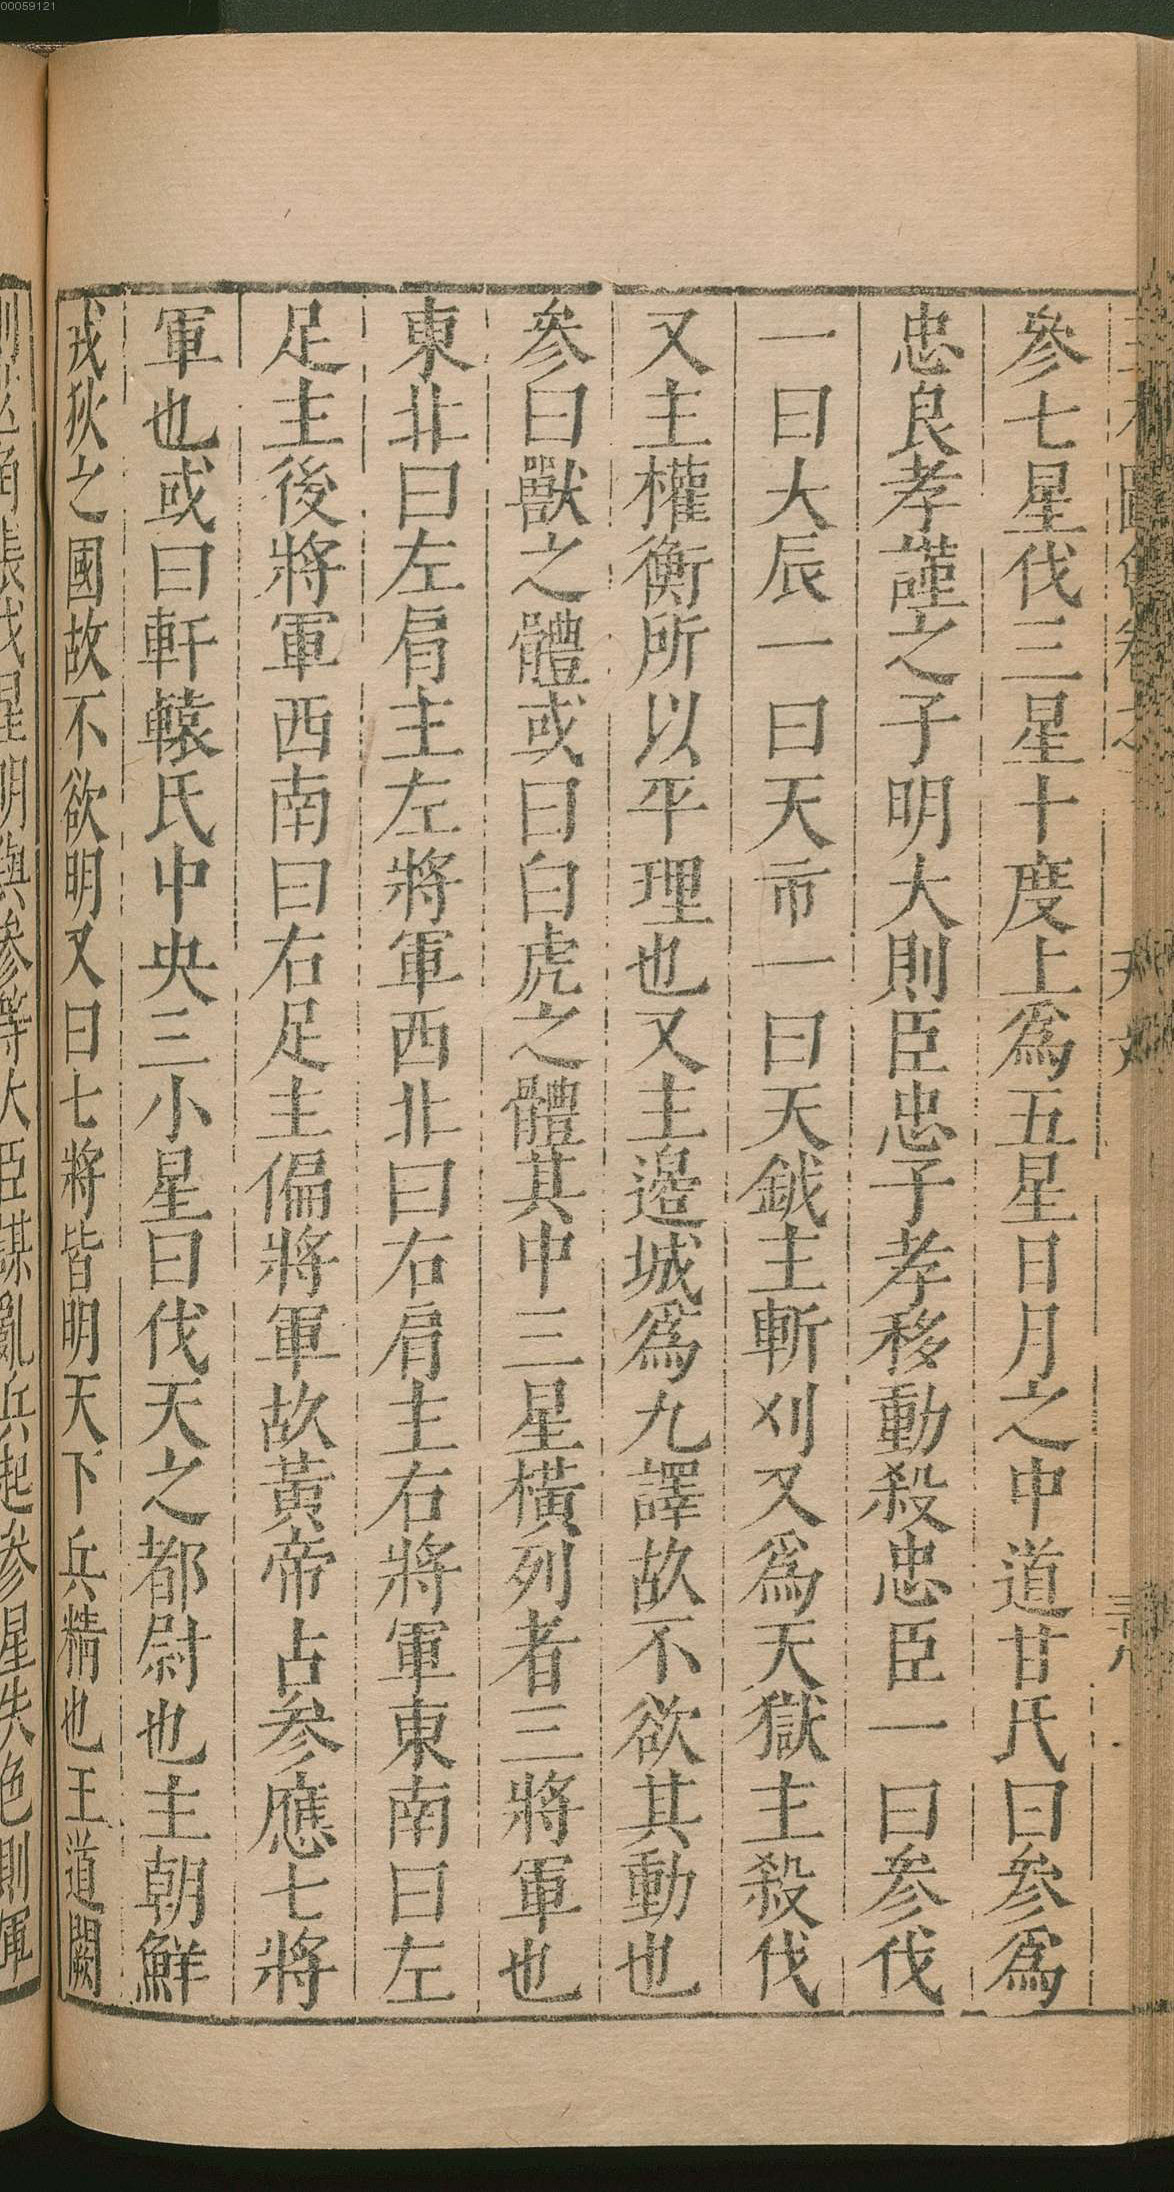 00059121
參七星伐三星十度上為五星日月之中道甘氏曰參為
忠良孝謹之子明大則臣忠子孝移動殺忠臣一曰參伐
一曰大辰一曰天市一曰天鉞主斬刈又為天獄主殺伐
又主權衡所以平理也又主邊城為九譯故不欲其動也
參曰獸之體或曰白虎之體其中三星橫列者三將軍也
東北曰左肩主左將軍西北曰右肩主右將軍東南曰左
足主後將軍西南曰右足主偏將軍故黃帝占參應七將
軍也或曰軒轅氏中央三小星曰伐天之都尉也主朝鮮
戎狄之國故不欲明又曰七將皆明天下兵精也王道闕
則芒角張伐星明與參等大臣謀亂兵起參星失色則軍